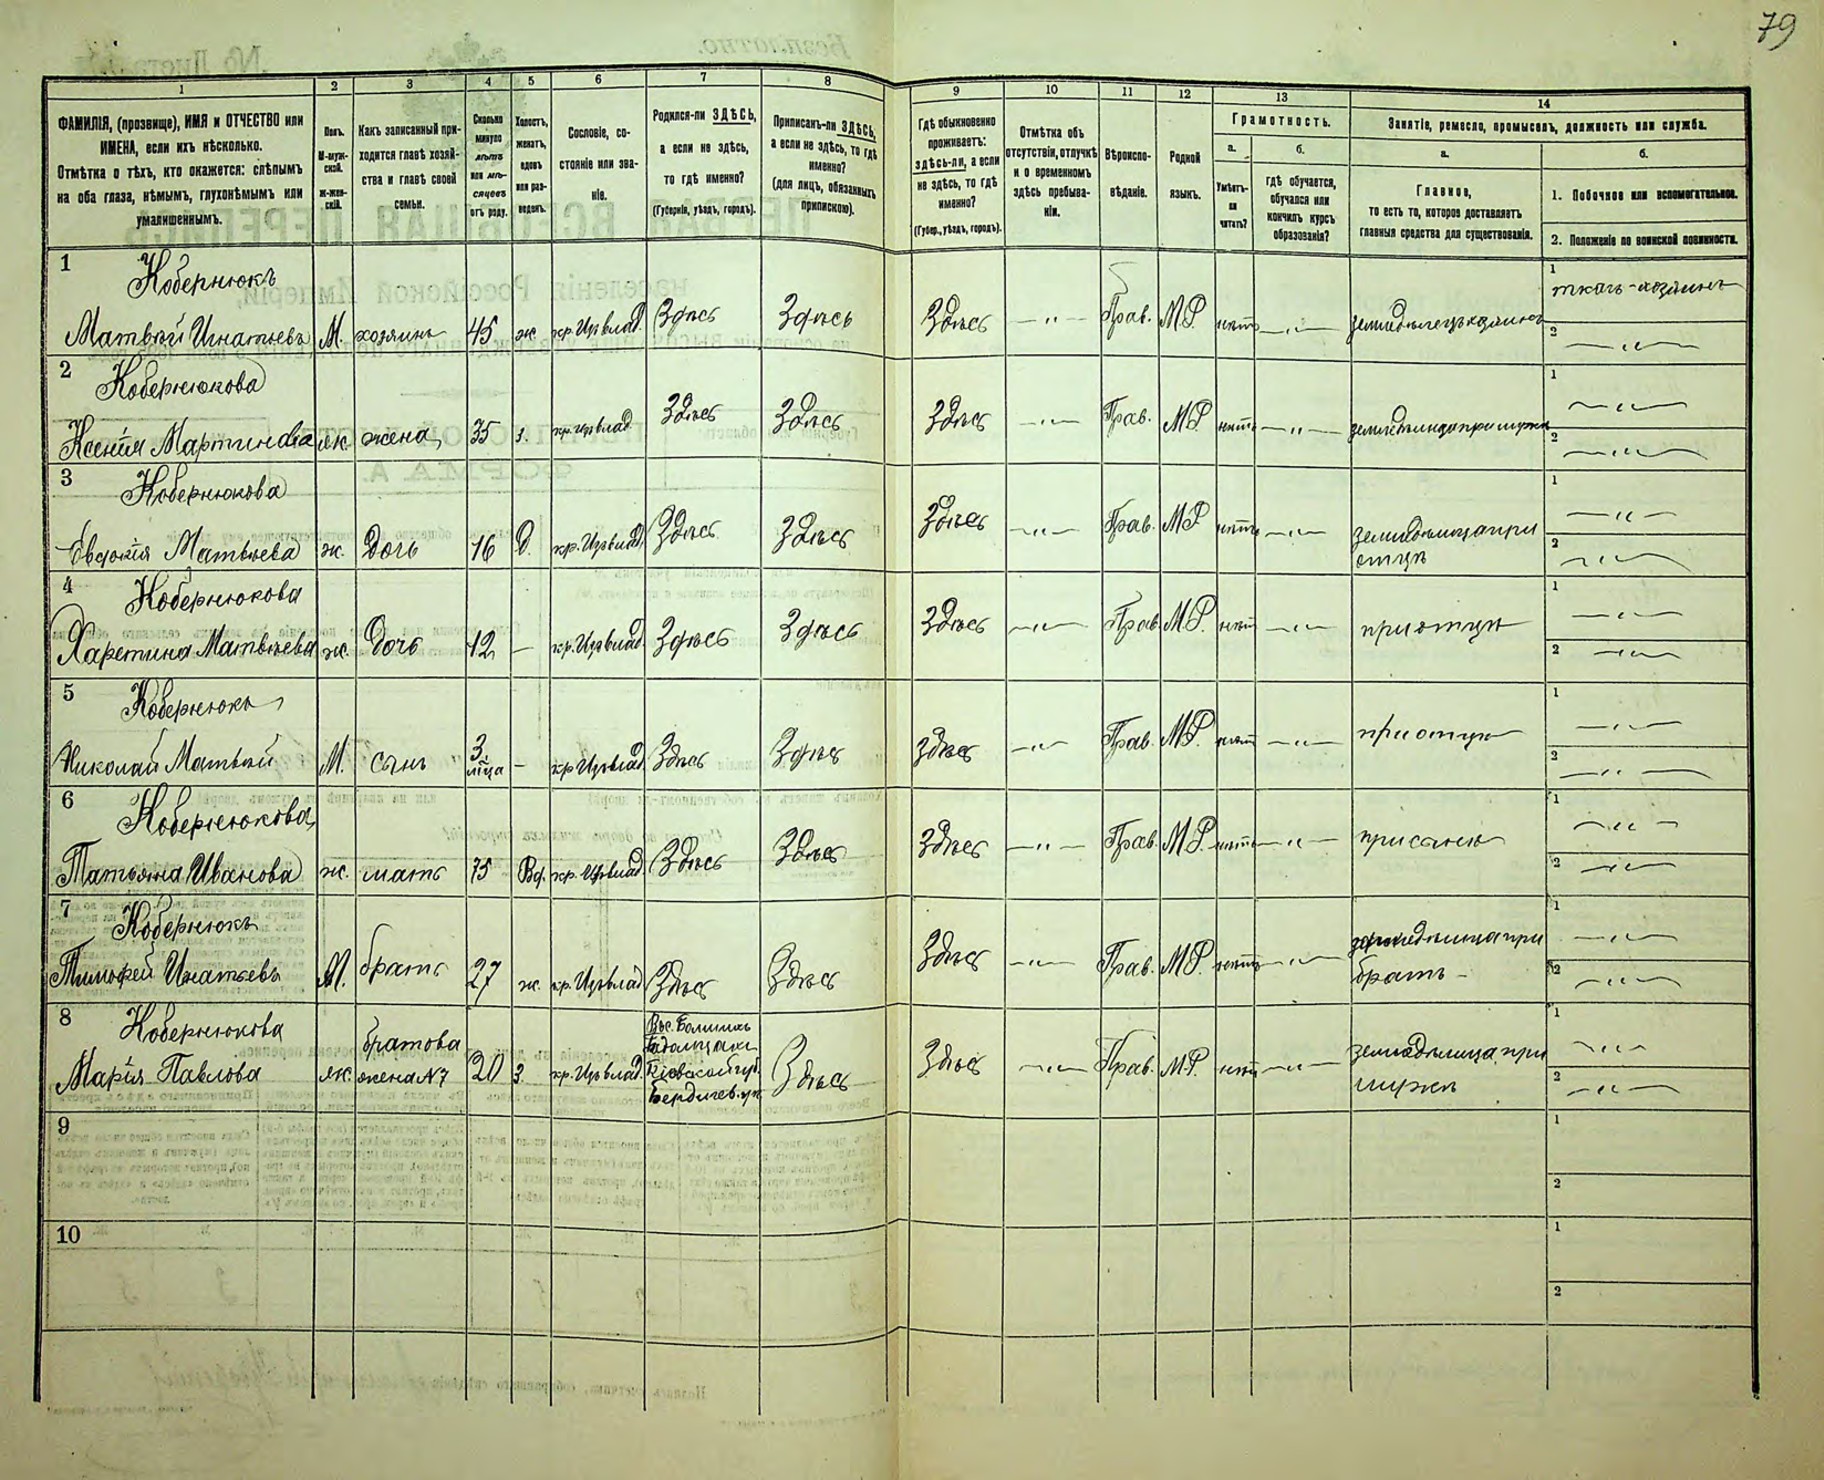 79
1
2
3
4
5
6
7
8
9
10
11
12
13
14
ФАМИЛІЯ, (прозвище), ИМЯ и ОТЧЕСТВО или ИМЕНА, если ихъ нѣсколько.
Отмѣтка о тѣхъ, кто окажется: слѣпымъ на оба глаза, нѣмымъ, глухонѣмымъ или умалишеннымъ.
Полъ.
М-мужской.
ж-женскій.
Какъ записанный приходится главѣ хозяйства и главѣ своей семьи.
Сколько минуло лѣтъ или мѣсяцевъ отъ роду.
Холостъ, женатъ, вдовъ или разведенъ.
Сословіе, состояніе или званіе.
Родился-ли ЗДѢСЬ, а если не здѣсь, то гдѣ именно?
(Губернія, уѣздъ, городъ).
Приписанъ-ли ЗДѢСЬ, а если не здѣсь, то гдѣ именно?
(для лицъ, обязанныхъ припискою).
Гдѣ обыкновенно проживаетъ: здѣсь-ли, а если не здѣсь, то гдѣ именно?
(Губер., уѣздъ, городъ).
Отмѣтка объ отсутствіи, отлучкѣ и о временномъ здѣсь пребываніи.
Вѣроисповѣданіе.
Родной языкъ.
Грамотность.
а.
Умѣетъ-ли читать?
б.
гдѣ обучается, обучался или кончилъ курсъ образованія?
Занятіе, ремесло, промыселъ, должность или служба.
а.
Главное,
то есть то, которое доставляетъ главныя средства для существованія.
б.
1. Побочное или вспомогательное.
2. Положеніе по воинской повинности.
1 Кобернюкъ
Матвѣй Игнатьевъ М. хозяинъ 45 ж. Здѣсь Здѣсь Здѣсь —"— Прав. М.Р. нѣтъ —"— земледѣлецъ хозяинъ
1 ткачъ-хозяинъ
2 —"—
2 Кобернюкова
Ксенія Мартинова ж. жена 35 з. Здѣсь Здѣсь Здѣсь —"— Прав. М.Р. нѣтъ —"— земледѣлица при мужѣ
1 —"—
2 —"—
3 Кобернюкова
Евдокія Матвѣева ж. Дочь 16 Д. Здѣсь Здѣсь Здѣсь —"— Прав. М.Р. нѣтъ —"— земледѣлица при отцѣ
1 —"—
2 —"—
4 Кобернюкова
Харетина Матвѣева ж. Дочь 12 — Здѣсь Здѣсь Здѣсь —"— Прав. М.Р. нѣтъ —"— при отцѣ
1 —"—
2 —"—
5 Кобернюкъ
Николай Матвѣй М. сынъ 3 мца — Здѣсь Здѣсь Здѣсь —"— Прав. М.Р. нѣтъ —"— при отцѣ
1 —"—
2 —"—
6 Кобернюкова
Татьяна Иванова ж. мать 75 Вд. Здѣсь Здѣсь Здѣсь —"— Прав. М.Р. нѣтъ —"— при сынѣ
1 —"—
2 —"—
7 Кобернюкъ
Тимофей Игнатьевъ М. братъ 27 ж. Здѣсь Здѣсь Здѣсь —"— Прав. М.Р. нѣтъ —"— при братѣ
1 —"—
2 —"—
8 Кобернюкова
Марія Павлова ж. братова жена №7 20 з. Кіевской губ. Бердичев. уѣ. Здѣсь Здѣсь —"— Прав. М.Р. нѣтъ —"— земледѣлица при мужѣ
1 —"—
2 —"—
9
1
2
10
1
2